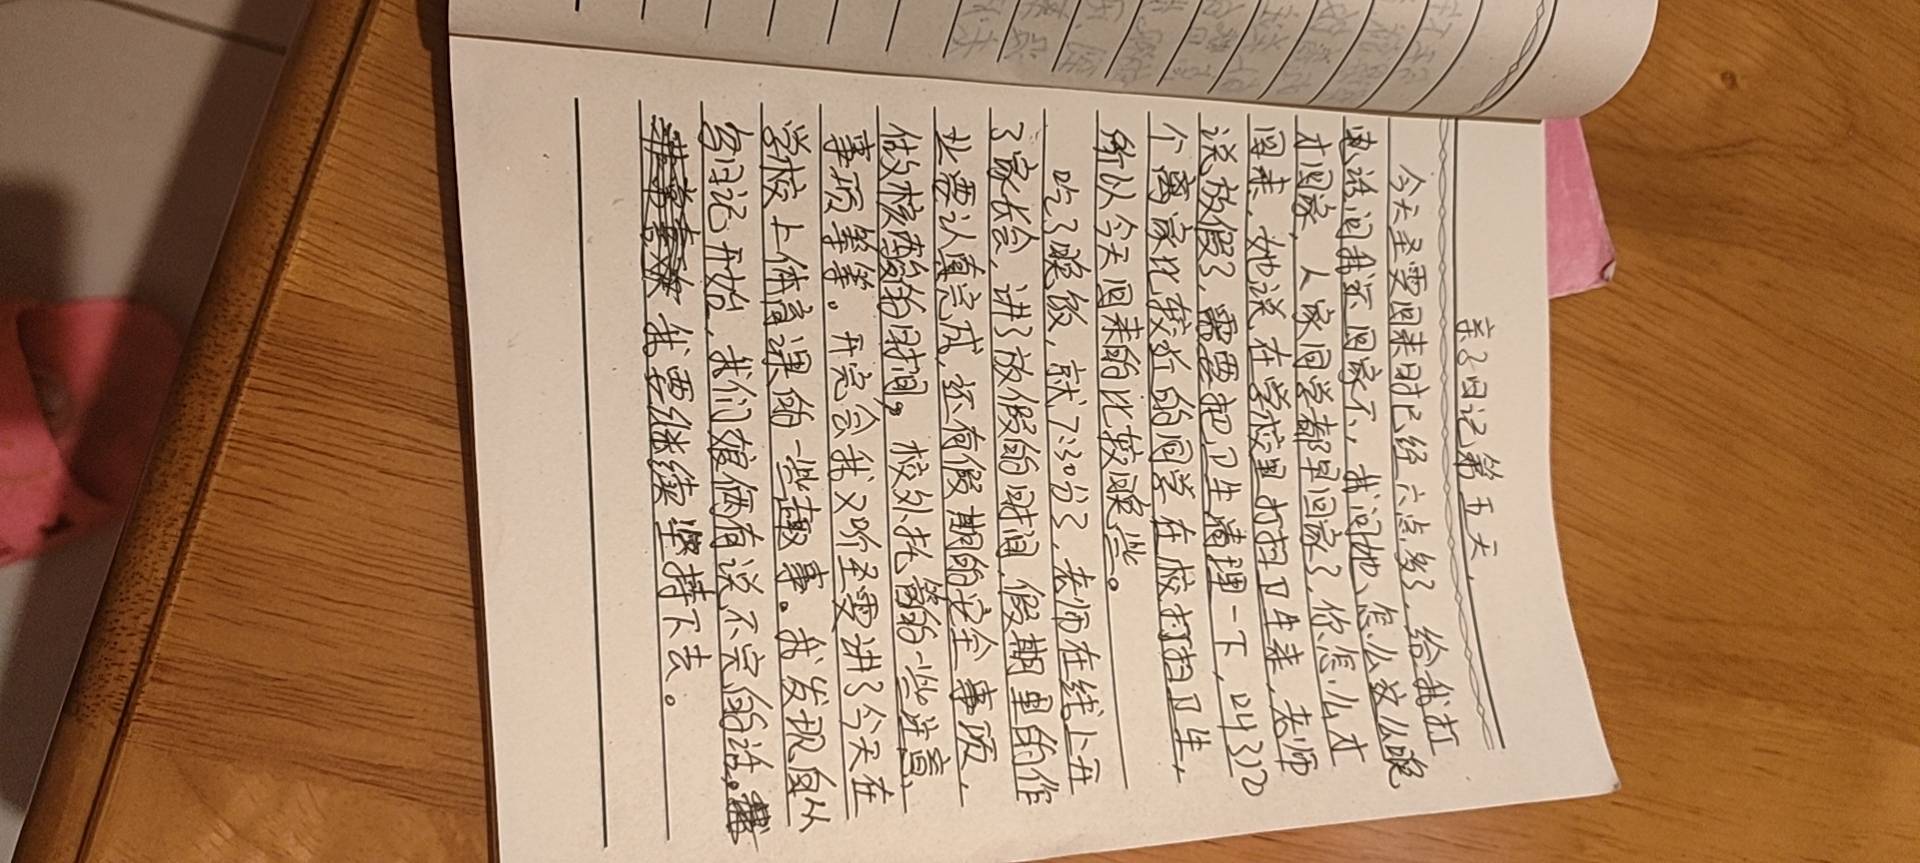 亲子日记第五天
今天圣雯回来时已经六点多了,给我打
电话问我还回家不,我问她、怎么这么晚
才回家,人家同学都早回家了,你怎么才
回来,她说在学校里打扫卫生来,老师
说放假了,需要把卫生清理一下,叫了几
个离家比较近的同学在校打扫卫生,
所以今天回来的比较晚些。
吃了晚饭,就7:30分了,老师在线上开
了家长会,讲了放假的时间,假期里的作
业要认真完成,还有假期的安全事项,
做核酸的时间。校外托管的一些注意
事项等等。开完会我又听圣雯讲了今天在
学校上体育课的一些趣事。我发现自从
写日记开始,我们娘俩有说不完的话。
我要继续坚持下去。